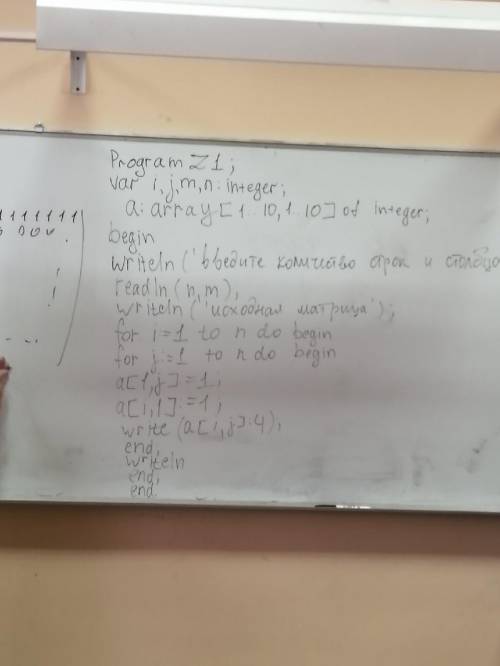 11111111
Program Z1;
var i,j,m,n: integer;
a: array [1..10,1..10] of integer;
begin
writeln ('введите количство строк и столбцо
readln (n,m),
writeln ('исходная матрица');
for i:=1 to n do begin
for j:=1 to n do begin
a[1,j]:=1;
a[i,1]:=1;
write (a[i,j]:4);
end,
writeln
end,
end.